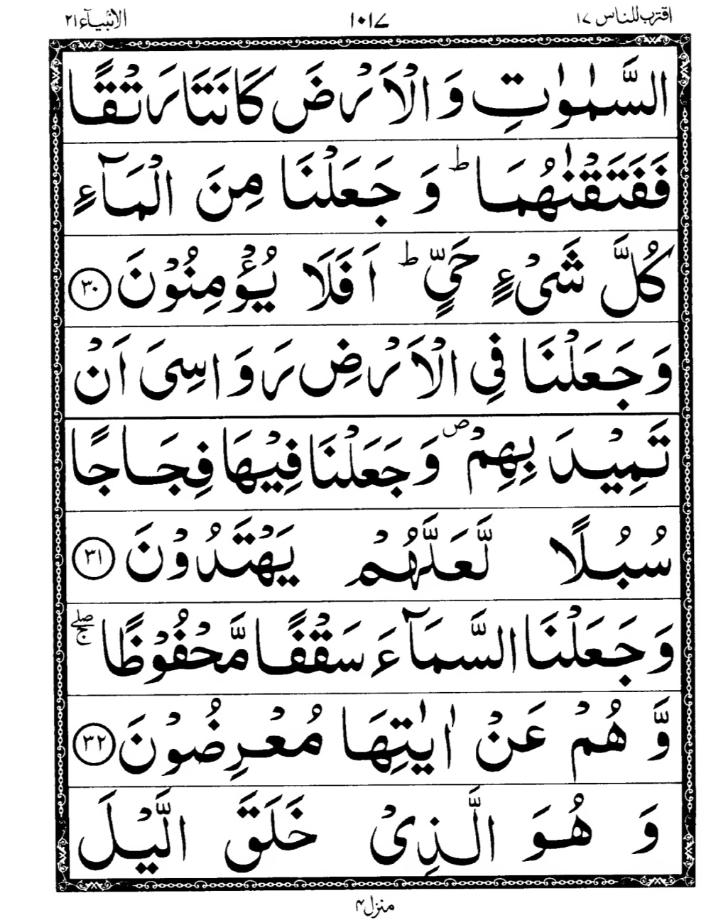 اقترب للناس ١٧ ١٠١٧ الانبیآء ٢١
السَّمٰوٰتِ وَ الْاَرْضَ كَانَتَا رَتْقًا
فَفَتَقْنٰهُمَا ؕ وَ جَعَلْنَا مِنَ الْمَآءِ
كُلَّ شَیْءٍ حَیٍّ ؕ اَفَلَا یُؤْمِنُوْنَ ﴿٣٠﴾
وَ جَعَلْنَا فِی الْاَرْضِ رَوَاسِیَ اَنْ
تَمِیْدَ بِهِمْ ۪ وَ جَعَلْنَا فِیْهَا فِجَاجًا
سُبُلًا لَّعَلَّهُمْ یَهْتَدُوْنَ ﴿٣١﴾
وَ جَعَلْنَا السَّمَآءَ سَقْفًا مَّحْفُوْظًا ۚۖ
وَّ هُمْ عَنْ اٰیٰتِهَا مُعْرِضُوْنَ ﴿٣٢﴾
وَ هُوَ الَّذِیْ خَلَقَ الَّیْلَ
منزل ۴